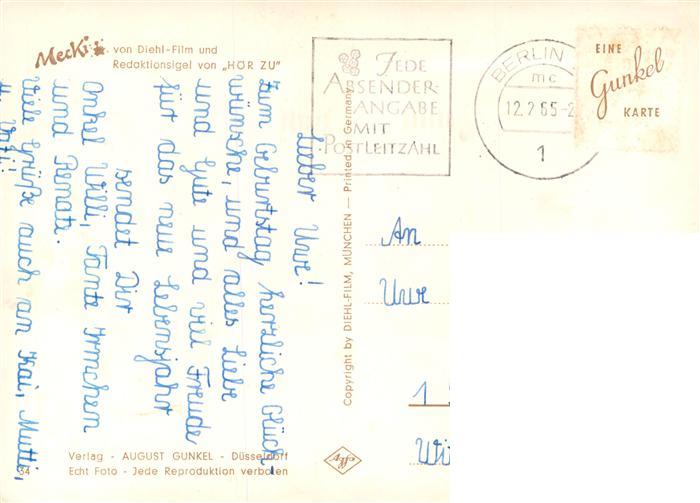 Mecki
von Diehl-Film und
Redaktionsigel von „HÖR ZU"
JEDE
ABSENDER-
ANGABE
MIT
POSTLEITZAHL
BERLIN
mc
12.2.65-2
1
EINE
Gunkel
KARTE
Lieber Uwe!
Zum Geburtstag herzliche Glück-
wünsche, und alles Liebe
und Gute und viel Freude
für das neue Lebensjahr
sendet Dir
Onkel Willi, Tante Irmchen
und Renate.
Viele Grüße auch an Kai, Mutti,
u. Vati!
Copyright by DIEHL-FILM, MÜNCHEN — Printed in Germany
An
Uwe
1
Verlag - AUGUST GUNKEL - Düsseldorf
34
Echt Foto - Jede Reproduktion verboten
Agfa